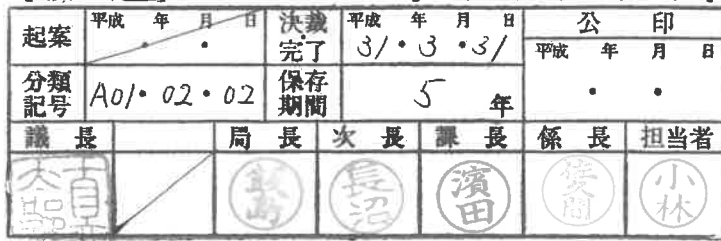 起案 平成 年 月 日 決裁完了 平成 年 月 日 31・3・31 公印
・ ・ 平成 年 月 日
分類記号 A01・02・02 保存期間 5年 ・ ・
議長 局長 次長 課長 係長 担当者
飯島 長沼 濱田 佐久間 小林